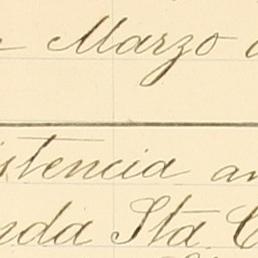 Marzo
istencia an
nda Sta. C